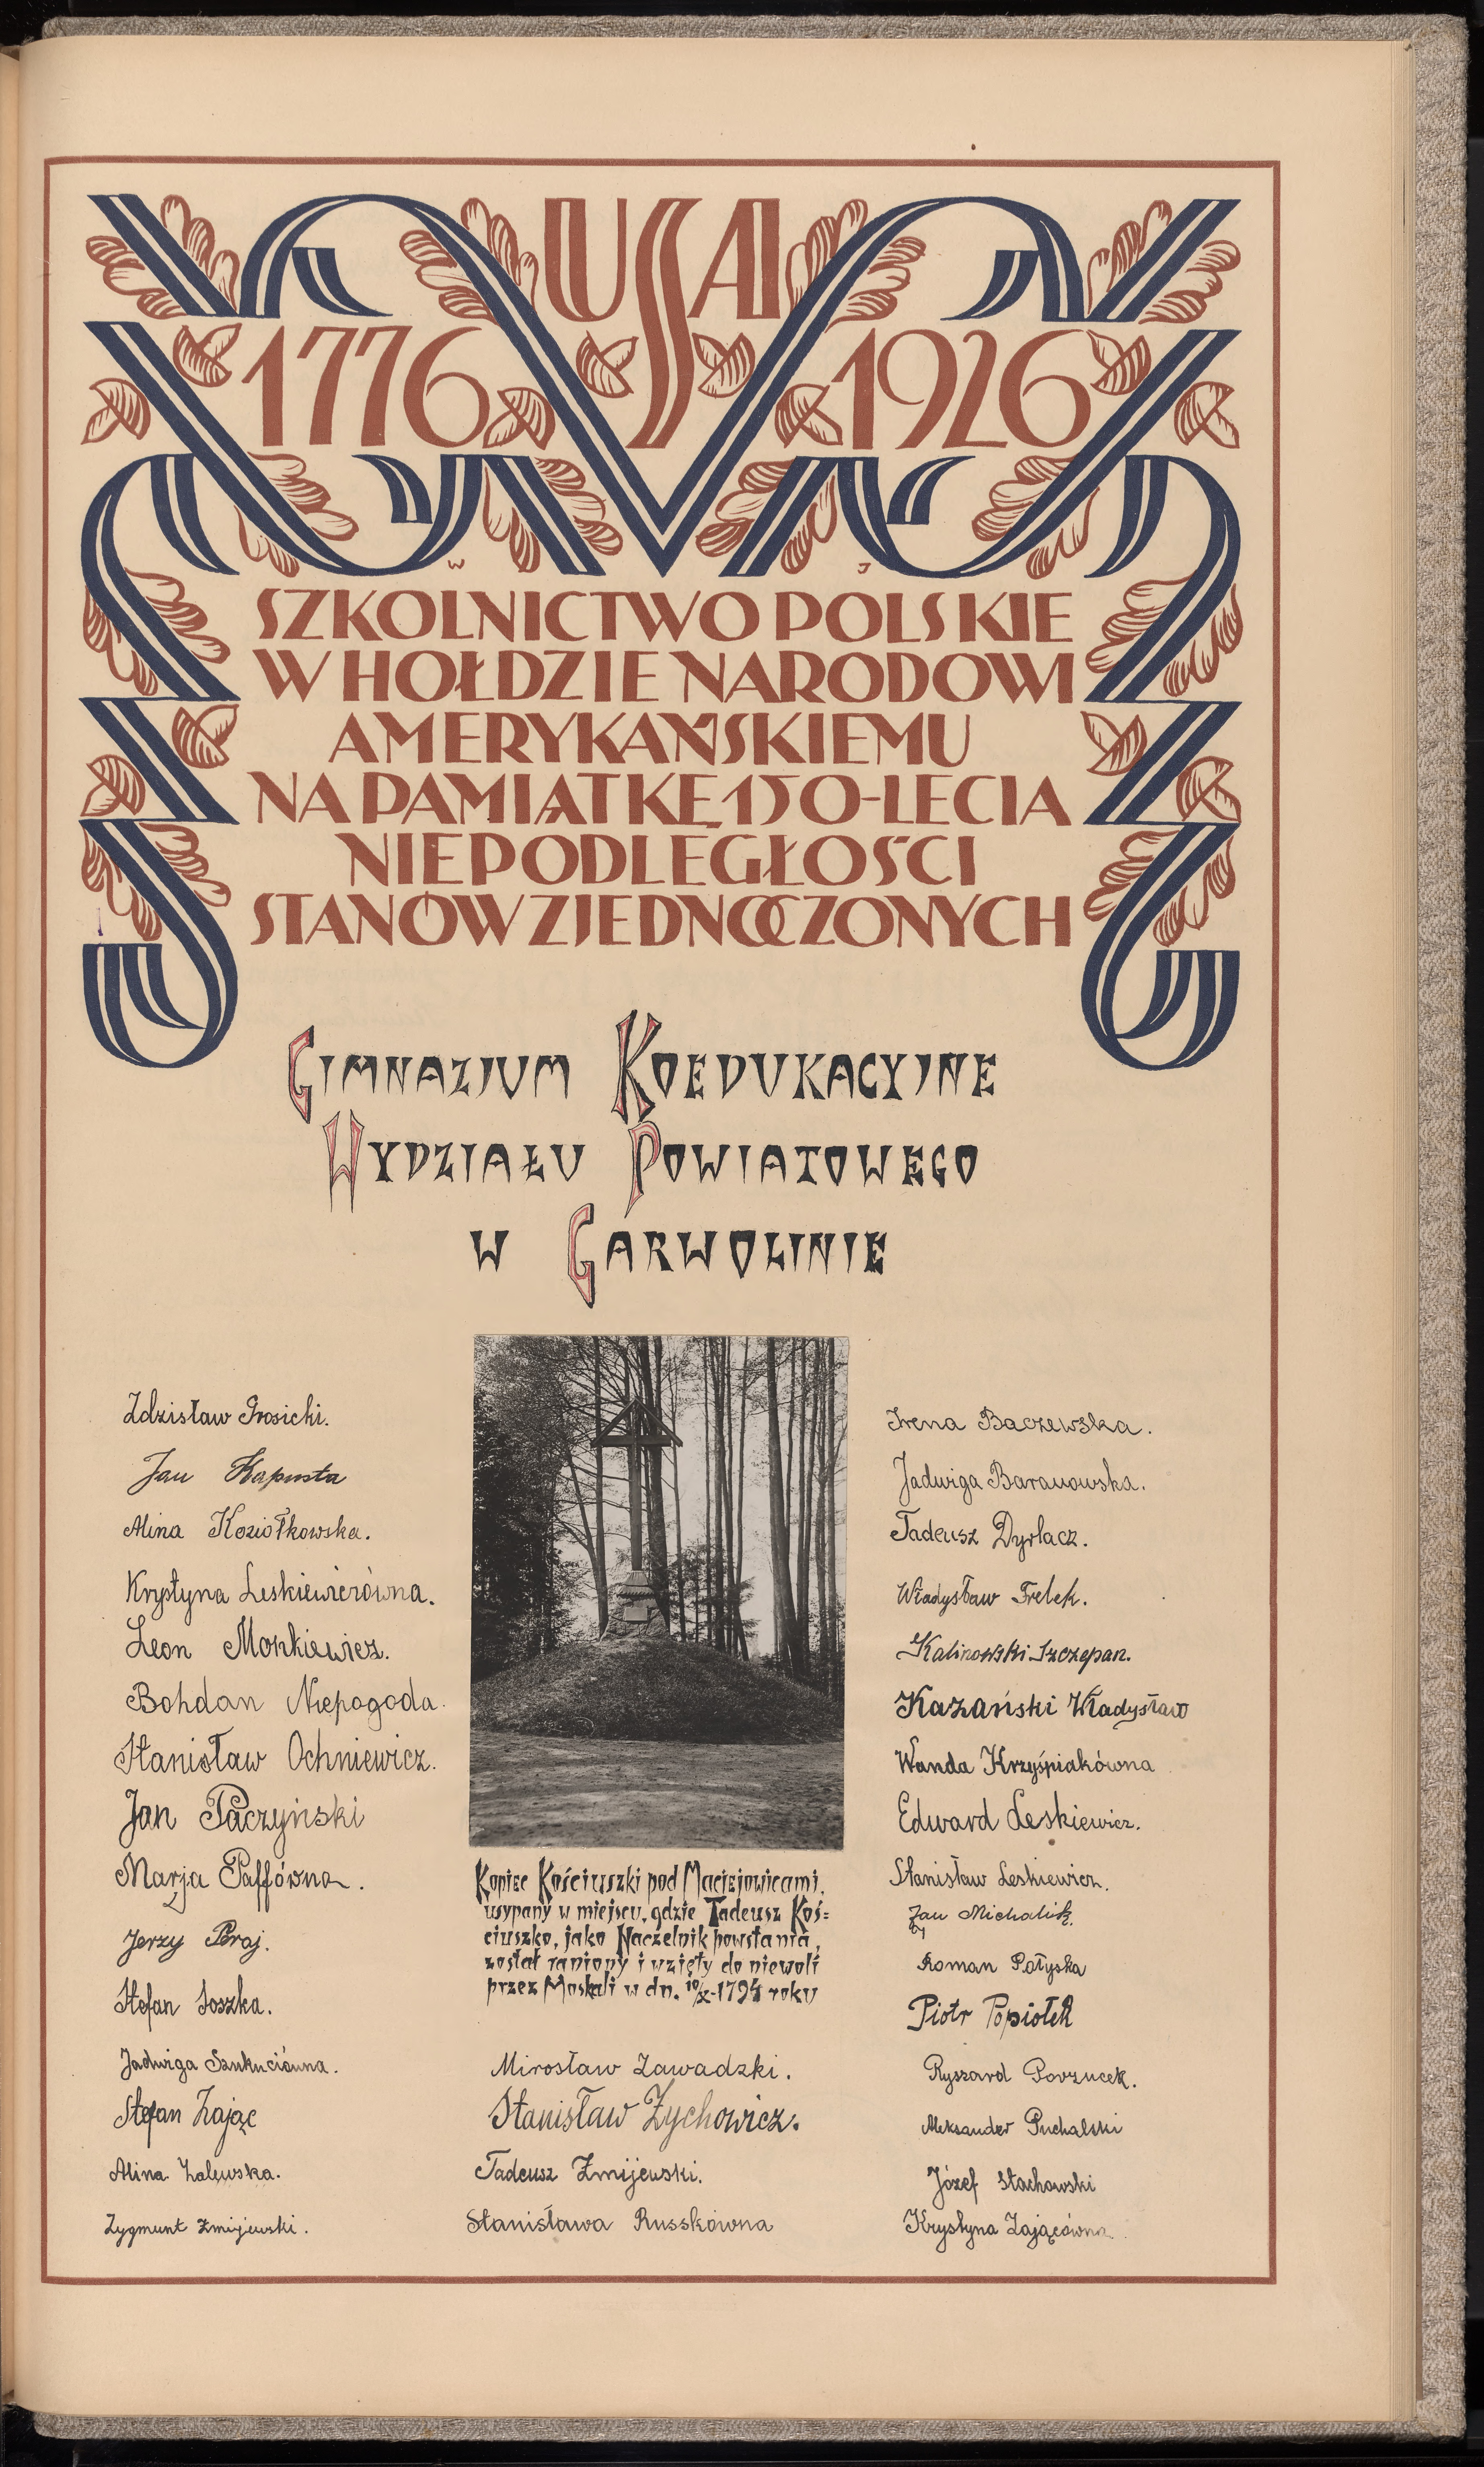 USA
1776 1926
W J
SZKOLNICTWO POLSKIE
W HOŁDZIE NARODOWI
AMERYKAŃSKIEMU
NA PAMIĄTKĘ 150-LECIA
NIEPODLEGŁOŚCI
STANÓW ZJEDNOCZONYCH
GIMNAZJUM KOEDUKACYJNE
WYDZIAŁU POWIATOWEGO
W GARWOLINIE
Zdzisław Grosicki.
Jan Kapusta
Alina Koziołkowska.
Krystyna Leskiewiczówna.
Leon Monkiewicz.
Bohdan Niepogoda.
Stanisław Ochniewicz.
Jan Paczyński
Marja Paffówna.
Jerzy Peraj.
Stefan Soszka.
Jadwiga Szukuciówna.
Stefan Zając
Alina Zalewska.
Zygmunt Żmijewski.
Kopiec Kościuszki pod Maciejowicami,
usypany w miejscu, gdzie Tadeusz Koś=
ciuszko, jako Naczelnik powstania,
został raniony i wzięty do niewoli
przez Moskali w dn. 10/X-1794 roku
Mirosław Zawadzki.
Stanisław Żychowicz.
Tadeusz Żmijewski.
Stanisława Russkówna
Irena Baczewska.
Jadwiga Baranowska.
Tadeusz Dyrłacz.
Władysław Frelek.
Kalinowski Szczepan.
Kazański Władysław
Wanda Krzyśpiakówna
Edward Leskiewicz.
Stanisław Leskiewicz.
Jan Michalik.
Roman Pałyska
Piotr Popiołek
Ryszard Powzucek.
Aleksander Puchalski
Józef Stachowski
Krystyna Zającówna